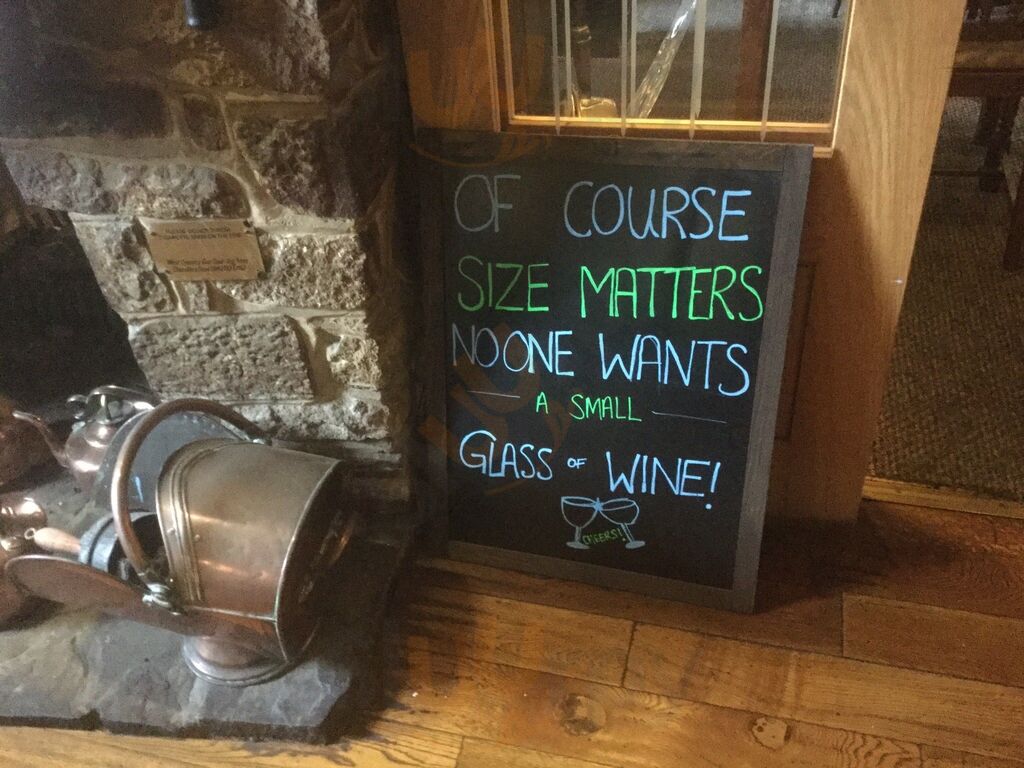 OF COURSE
SIZE MATTERS
NO ONE WANTS
A SMALL
GLASS OF WINE!
CHEERS!